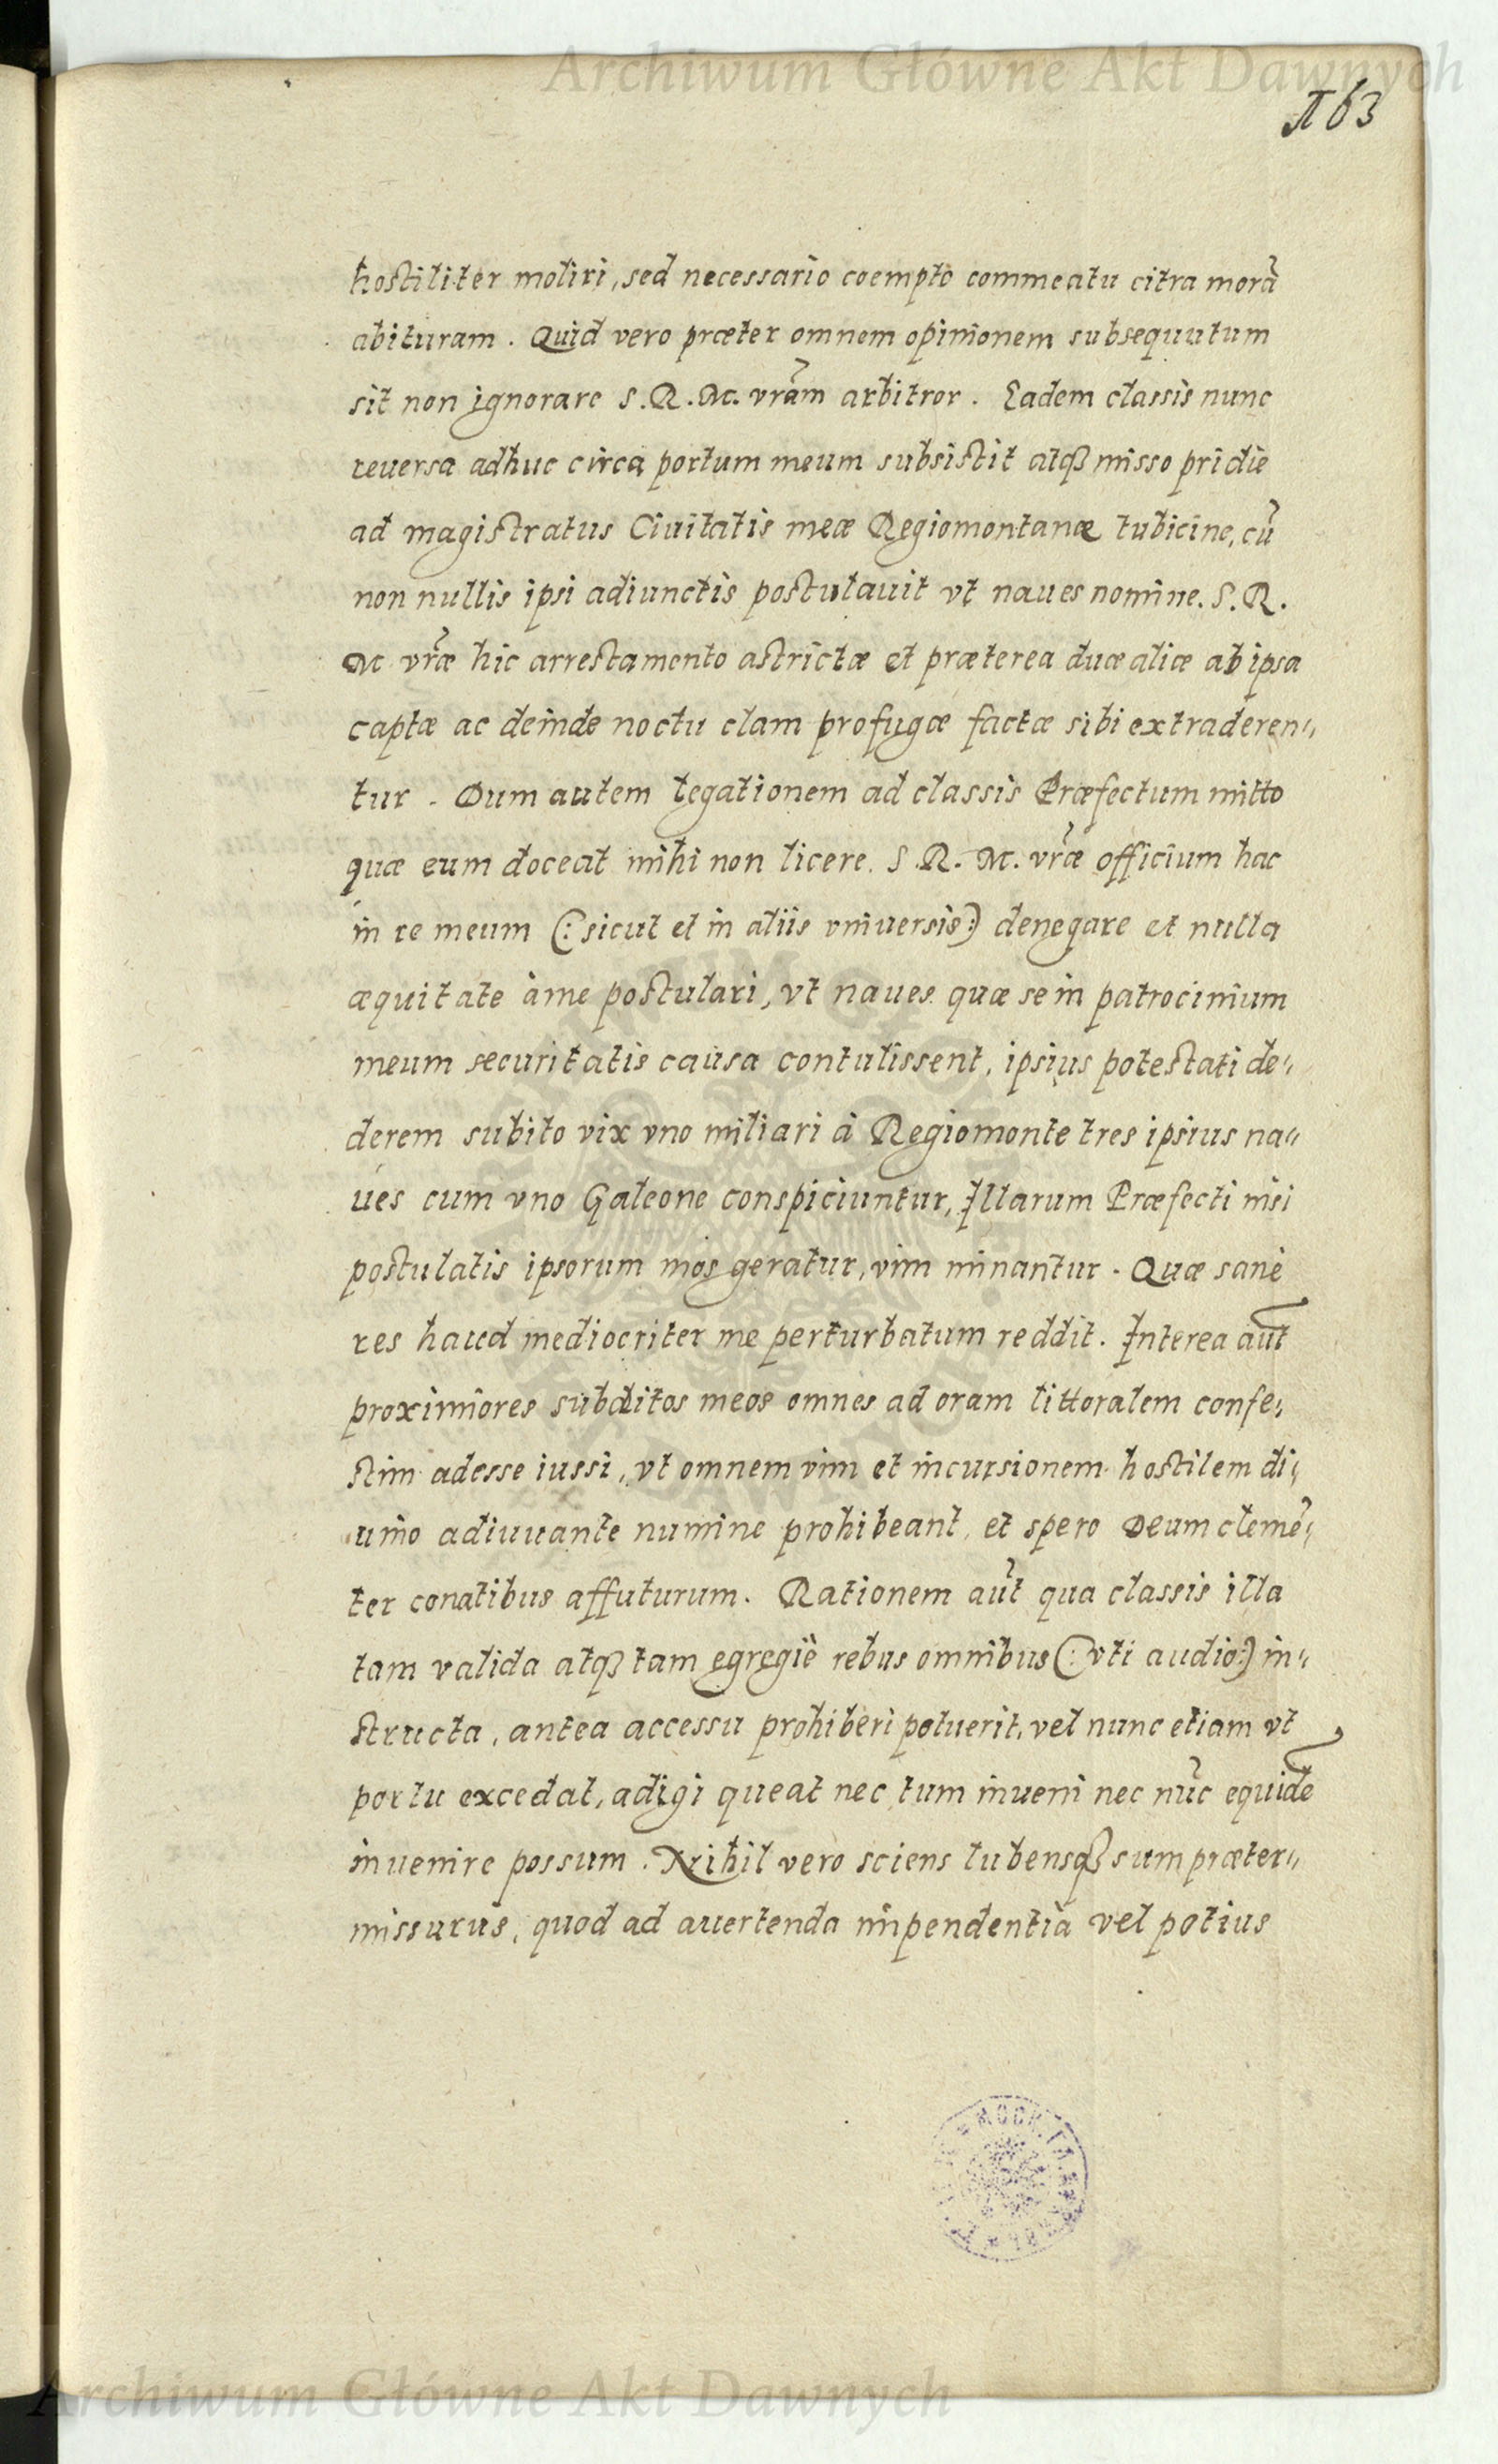 Archiwum Główne Akt Dawnych
163
hostiliter moliri, sed necessario coempto commeatu citra morã
abituram. Quid vero præter omnem opinionem subsequutum
sit non ignorare S. R. M. vrãm arbitror. Eadem classis nunc
reuersa adhuc circa portum meum subsistit atqꝫ misso pridie
ad magistratus Ciuitatis meæ Regiomontanæ tubicine, cũ
non nullis ipsi adiunctis postulauit vt naues nomine. S. R.
M vræ̃ hic arrestamento astrictæ et præterea duæ aliæ ab ipsa
captæ ac deinde noctu clam profugæ factæ sibi extraderen„
tur. Dum autem legationem ad classis Præfectum mitto
quæ eum doceat mihi non licere. S. R. M. vræ̃ officium hac
in re meum (: sicut et in aliis vniuersis :) denegare et nulla
æquitate à me postulari, vt naues quæ se in patrocinium
meum securitatis causa contulissent, ipsius potestati de„
derem subito vix vno miliari à Regiomonte tres ipsius na„
ues cum vno Galeone conspiciuntur, Illarum Præfecti nisi
postulatis ipsorum mos geratur, vim minantur. Quæ sanè
res haud mediocriter me perturbatum reddit. Interea aũt
proximiores subditos meos omnes ad oram littoralem confe„
stim adesse iussi, vt omnem vim et incursionem hostilem di„
uino adiuuante numine prohibeant, et spero Deum clemẽ„
ter conatibus affuturum. Rationem aũt qua classis illa
tam valida atqꝫ tam egregiè rebus omnibus (: vti audio :) in„
structa, antea accessu prohiberi potuerit, vel nunc etiam vt
portu excedat, adigi queat nec tum inueni nec nũc equidẽ
inuenire possum. Nihil vero sciens lubensqꝫ sum præter„
missurus, quod ad auertenda impendentia vel potius
Archiwum Główne Akt Dawnych